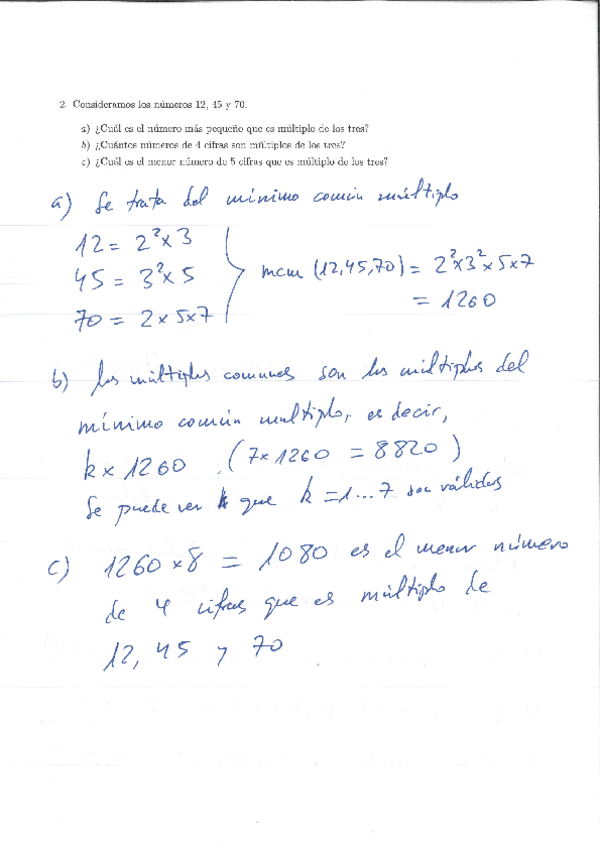 2. Consideramos los números 12, 45 y 70.
a) ¿Cuál es el número más pequeño que es múltiplo de los tres?
b) ¿Cuántos números de 4 cifras son múltiplos de los tres?
c) ¿Cuál es el menor número de 5 cifras que es múltiplo de los tres?
a) Se trata del mínimo común múltiplo
12 = 2² x 3
45 = 3² x 5
70 = 2 x 5 x 7
mcm (12,45,70) = 2² x 3² x 5 x 7
= 1260
b) los múltiplos comunes son los múltiplos del
mínimo común multiplo, es decir,
k x 1260 (7 x 1260 = 8820)
Se puede ver k que k = 1...7 son válidos
c) 1260 x 8 = 1080 es el menor número
de 4 cifras que es múltiplo de
12, 45 y 70